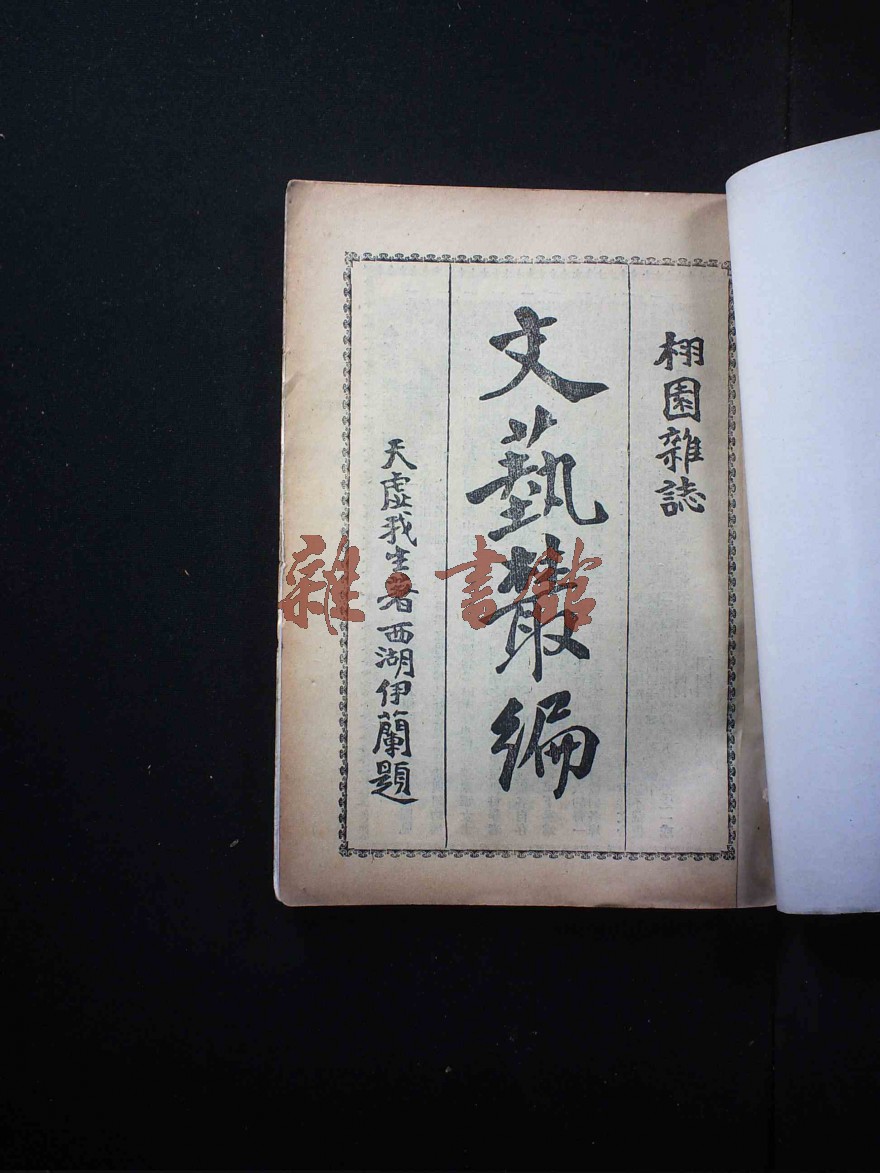 栩園雜誌
文藝叢編
天虛我生著西湖伊蘭題
雜·書館